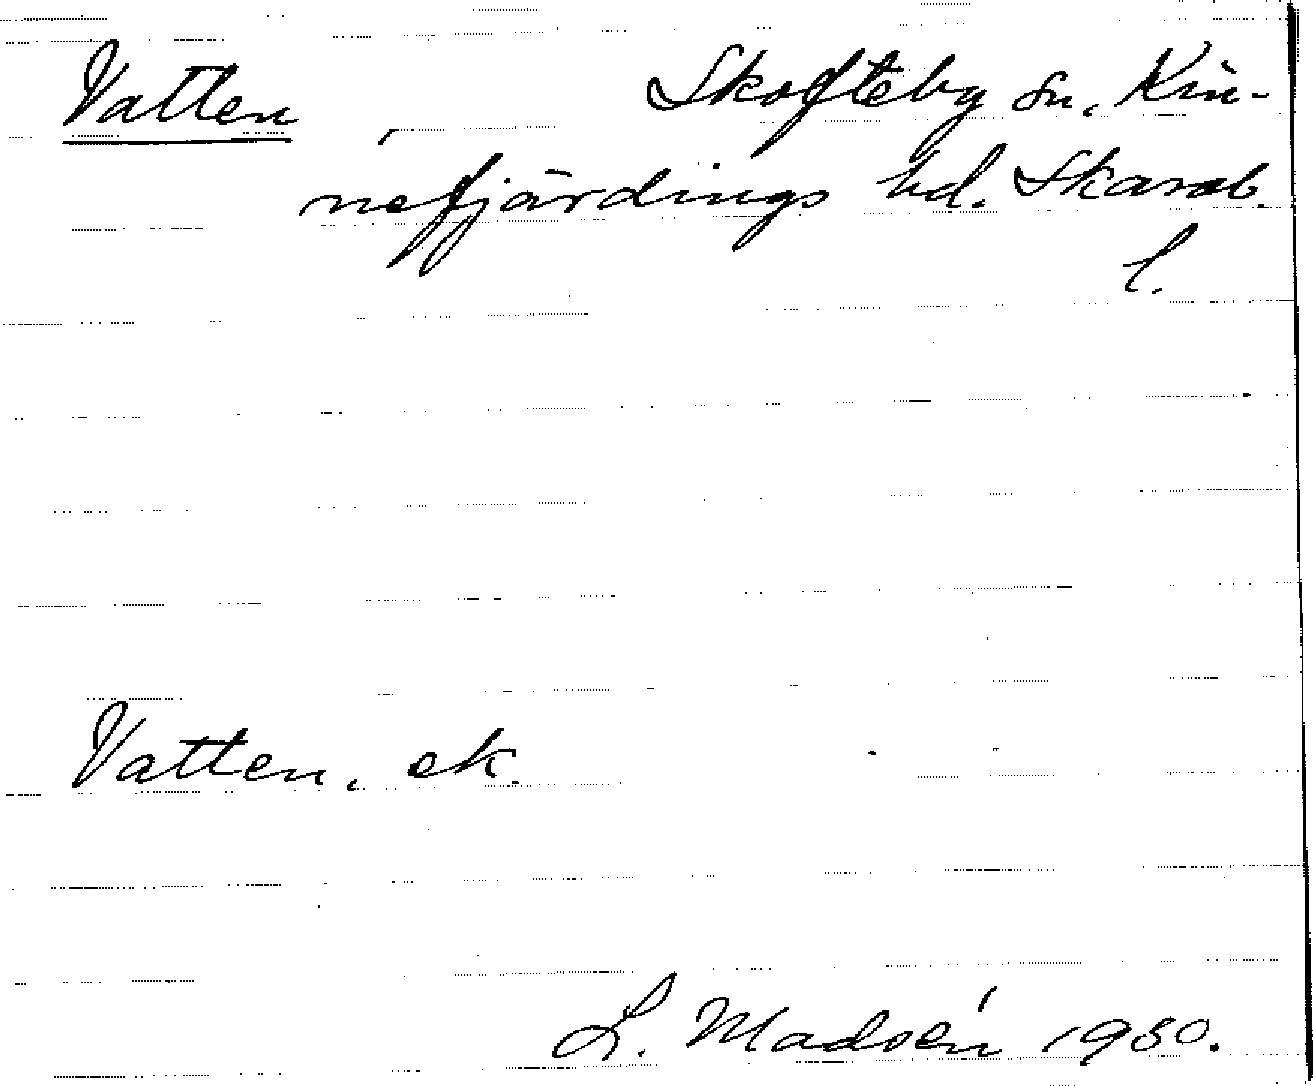 Vatten Skofteby sn, Kin-
nefjärdings hd. Skarab.
l.
Vatten, ek.
L. Madsén 1930.